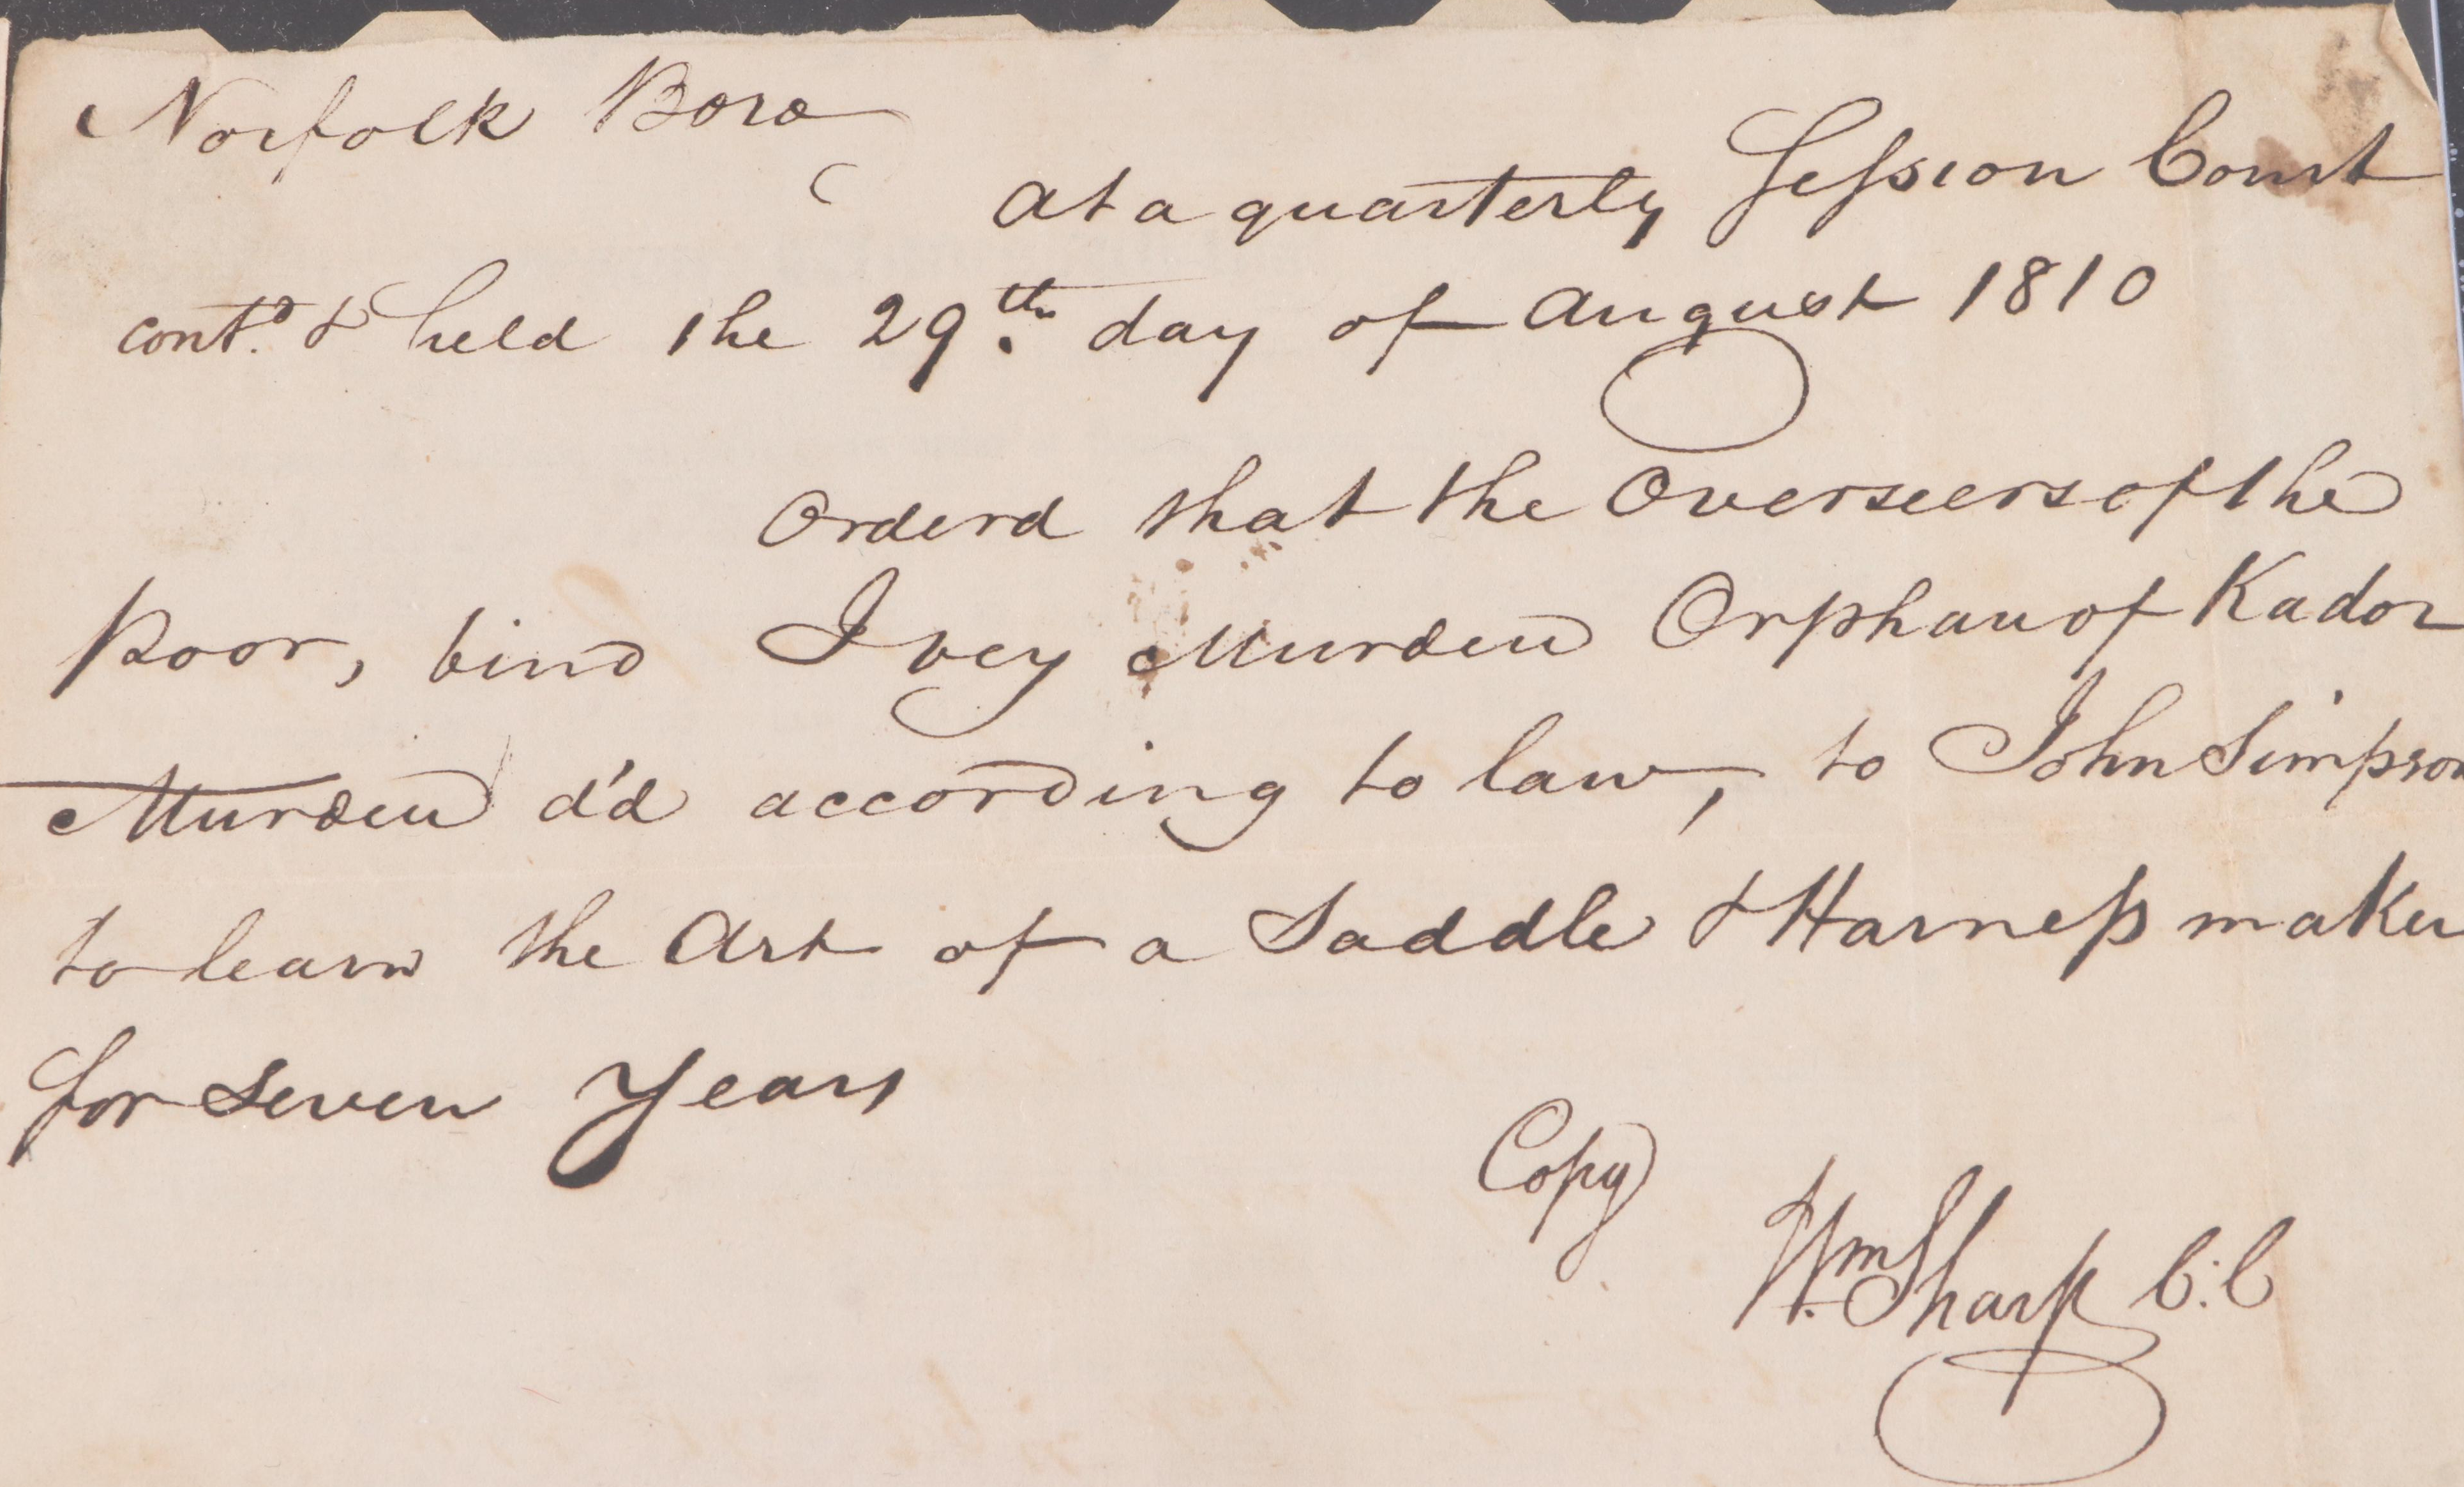 Norfolk Boro
At a quarterly Session Court
contd. & held the 29th. day of August 1810
Orderd that the Overseers of the
Poor, bind Ivey Murden Orphan of Kador
Murden d'd according to law, to John Simpson
to learn the Art of a Saddle & Harness maker
for Seven Years
Copy
Wm Sharp C:C